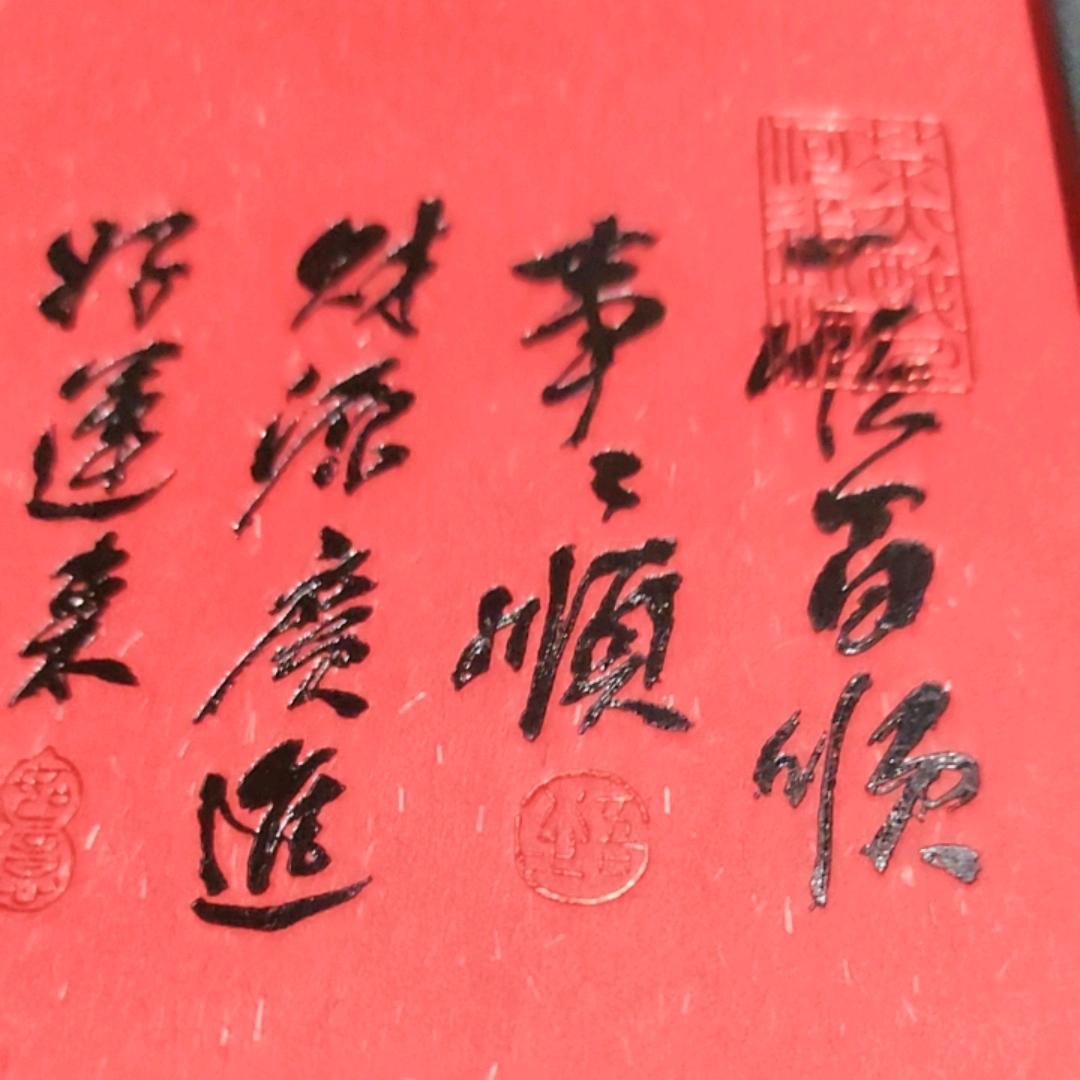 一順百順
事〻順
財源廣進
好運來